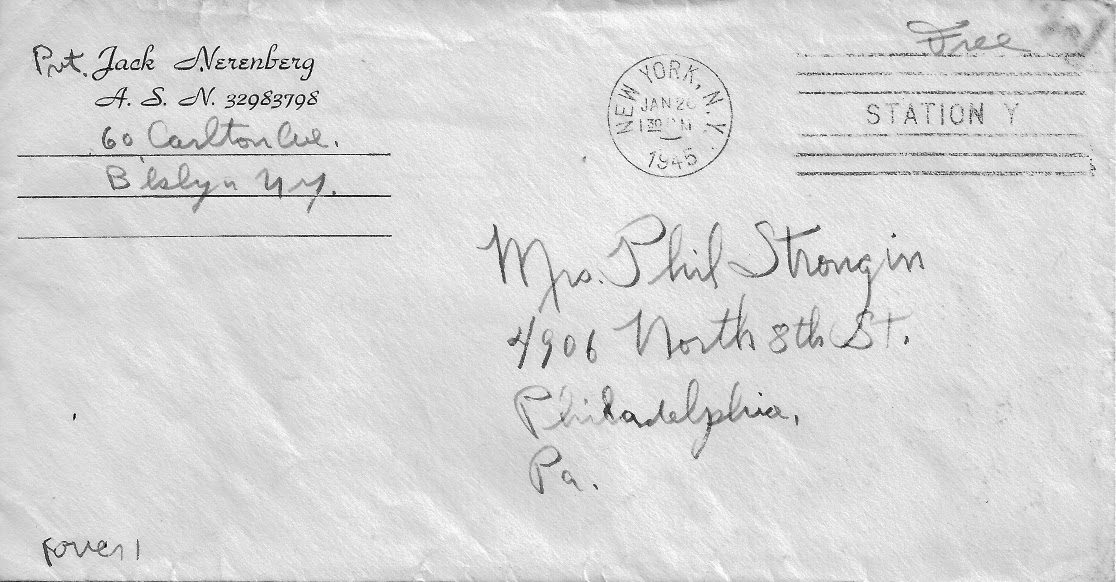 Pvt. Jack Nerenberg
A. S. N. 32983798
60 Carlton Ave.
Bklyn N.Y.
NEW YORK, N.Y.
JAN 26
1 30 PM
1945
Free
STATION Y
Mrs. Phil Strongin
4906 North 8th St.
Philadelphia,
Pa.